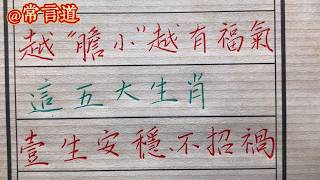 @常言道
越“膽小”越有福氣
這五大生肖
壹生安穩、不招禍